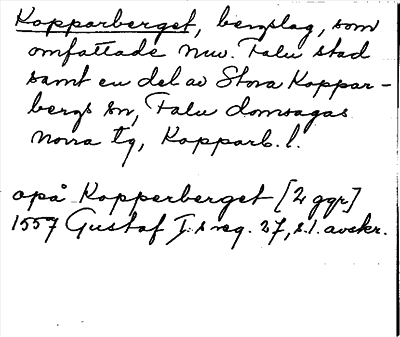 Kopparberget, bergslag, som
omfattade nuv. Falu stad
samt en del av Stora Koppar-
bergs sn, Falu domsagas
norra tg, Kopparb. l.
opå Kopperberget [2 ggr]
1557 Gustaf I:s reg. 27, s. 1. avskr.